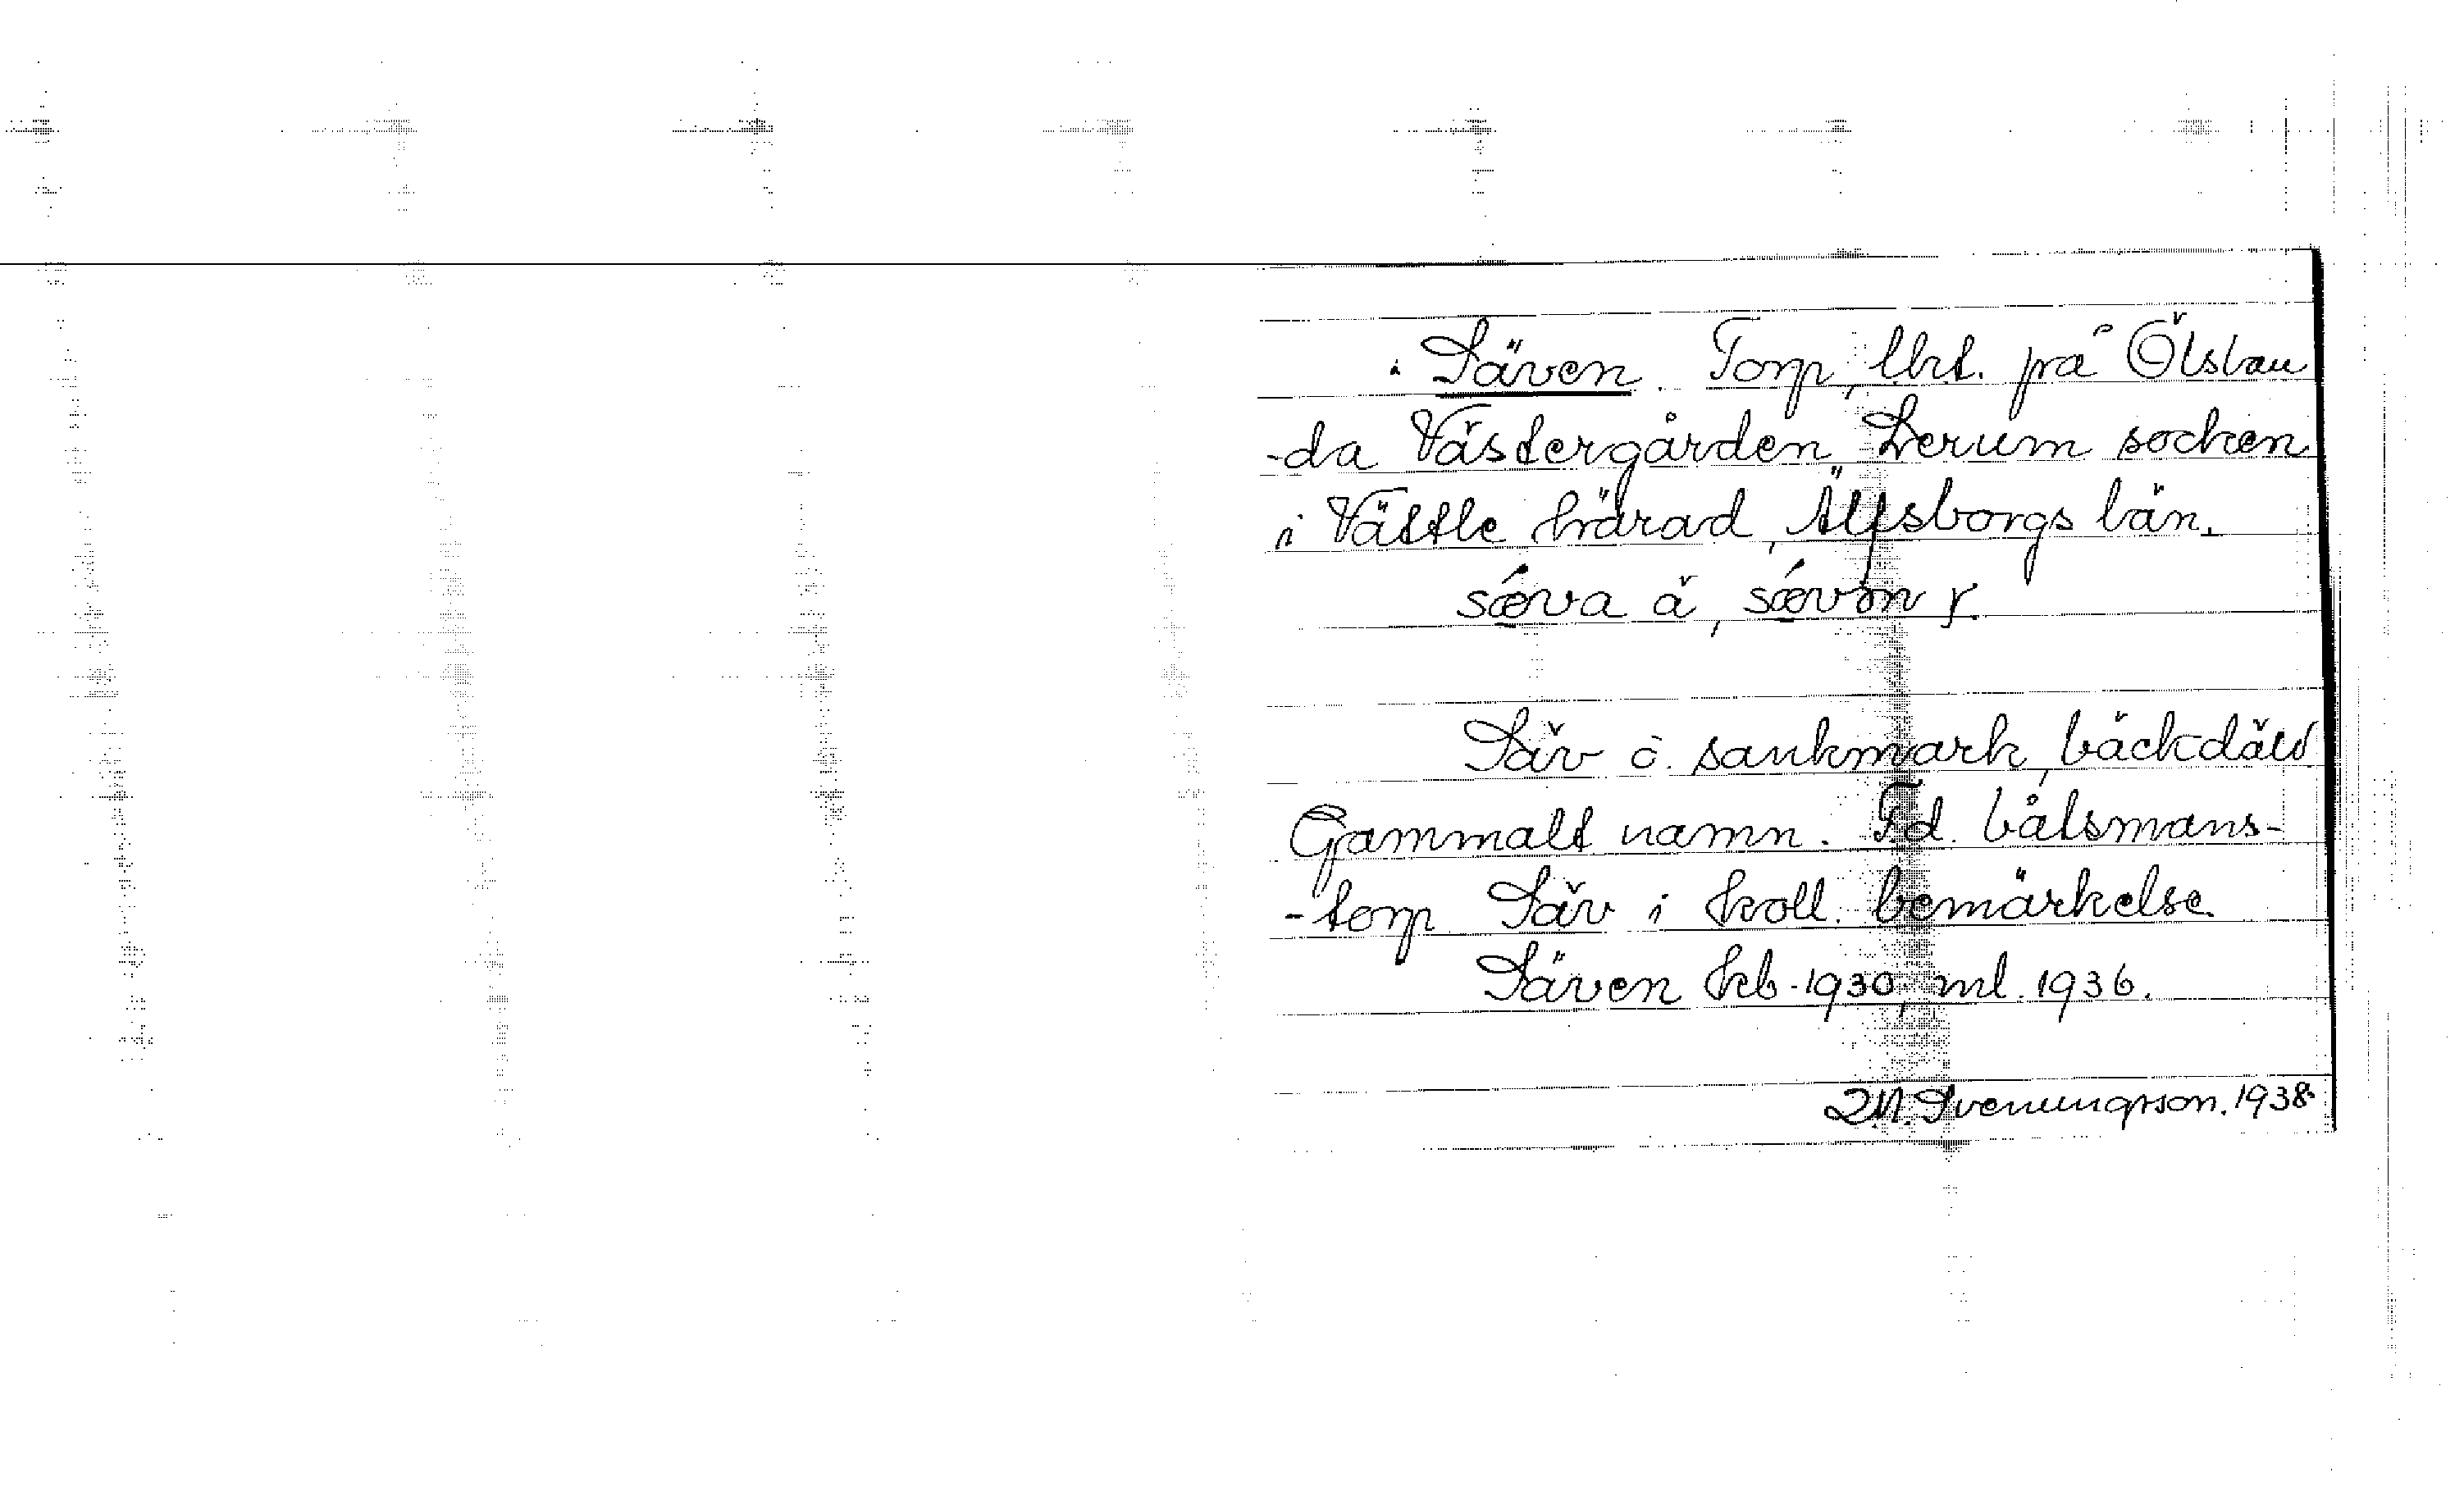 Säven. Torp, lht. på Ölslan
-da Västergården, Lerum socken
i Vättle härad, Älfsborgs län.
sǽva å, sǽvon r.
Säv o. sankmark, bäckdäld
Gammalt namn. F.d. båtsmans-
-torp. Säv i koll. bemärkelse.
Säven kb. 1930, ml. 1936.
Svenungsson. 1938